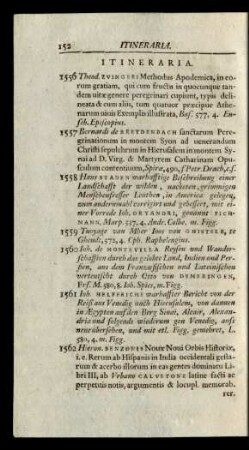 152 ITINERARIA.
ITINERARIA.
1556 Theod. ZVINGERI Methodus Apodemica, in eorum
gratiam, qui cum fructu in quocunque tandem
vitæ genere peregrinari cupiunt, typis delineata
& cum aliis, tum quatuor præcipue Athenarum
vivis Exemplis illustrata, Bas. 577. 4. Euseb.
Episcopius.
1557 Bernardi de BREYDENBACH sanctarum Peregrinationum
in montem Syon ad venerandum
Christi sepulchrum in Hierusalem in montem Synai
ad D. Virg. & Martyrem Catharinam Opusculum
contentivum, Spiræ, 490. f. Petr. Drach, f. C.
1558 Hans STADEN warhafftige Beschreibung einer
Landschafft der wilden, nacketen, grimmigen
Menschenfresser Leuthen, in America gelegen,
zum andermal corrigirt und gebessert, mit einer
Vorrede Joh. DRYANDRI, genannt EICHMANN,
Marp. 557. 4. Andr. Colbe. m. Figg.
1559 Tuygage van Mher Joos van GHISTELE, te
Ghendt, 572. 4. Cph. Raphelengius.
1560 Joh. de MONTEVILLA Reysen und Wanderschafften
durch das gelobte Land, Indien und Persien,
aus dem Franzosischen und Lateinischen
verteuscht durch Otto von DEMERINGEN,
Frf. M. 580. 8. Joh. Spies, m. Figg.
1561 Joh. HELFFRICHS warhaffter Bericht von der
Reiss aus Venedig nach Hierusalem, von dannen
in Ægypten auf den Berg Sinai, Alcair, Alexandria
und folgends wiederum gen Venedig, auffs
neu übersehen, und mit etl. Figg. gemehret, L.
580. 4. m. Figg.
1562 Hieron. BENZONIS Novæ Novi Orbis Historiæ,
i. e. Rerum ab Hispanis in India occidentali gestarum
& acerbo illorum in eas gentes dominatu Libri
III, ab Urbano CALVETONE latine facti ac
perpetuis notis, argumentis & locupl. memorab.